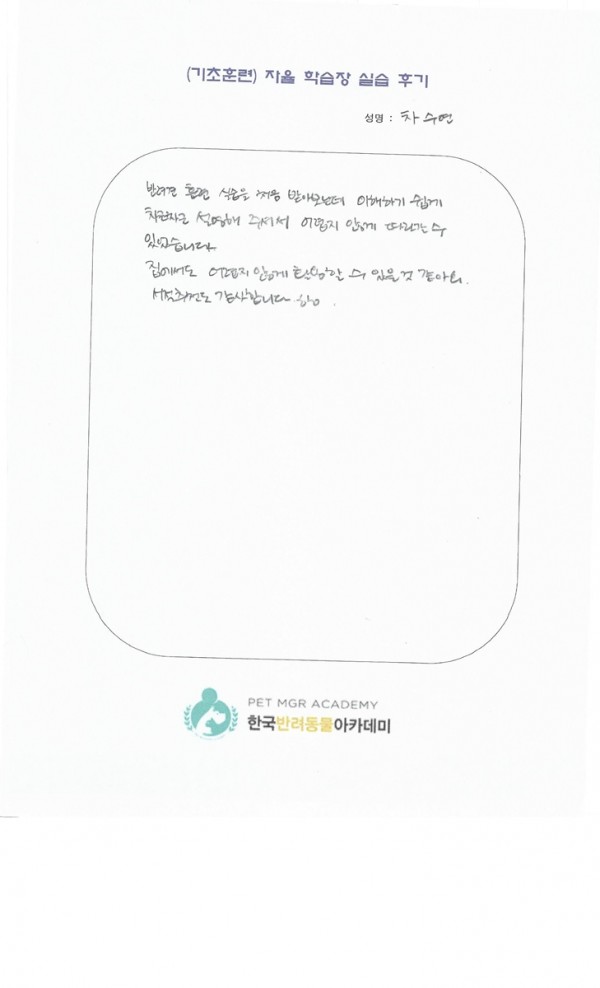 (기초훈련) 자율 학습장 실습 후기
성명 : 차 수연
반려견 훈련 실습을 처음 받아보는데 이해하기 쉽게
차근차근 설명해 주셔서 어렵지 않게 따라가는 수
있었습니다
집에서도 어렵지 않게 훈련할 수 있을것 같아요.
감사합니다
PET MGR ACADEMY
한국반려동물아카데미